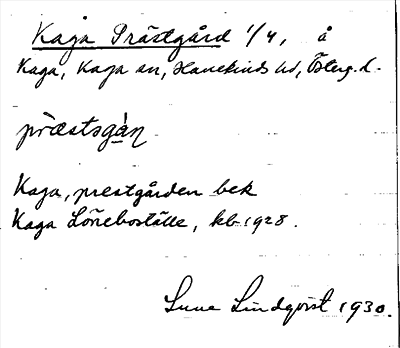 Kaga Prästgård 1/4, å
Kaga, Kaga sn, Hanekinds hd, Österg. l.
præ̀stsgạ́n
Kaga, prestgården bek
Kaga Löneboställe, kb 1928.
Sune Lindqvist 1930.